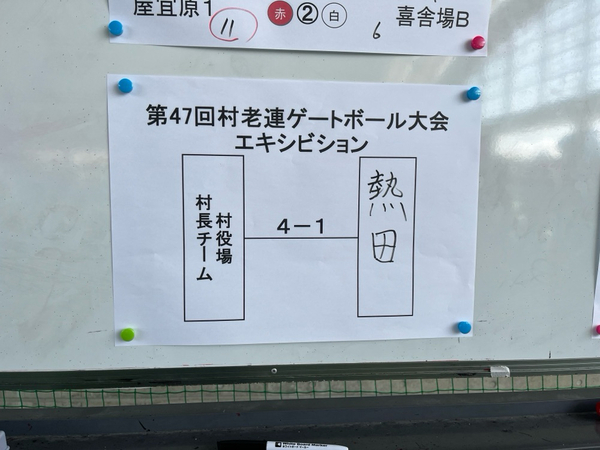 屋宜原1
11
赤
②
白
6
喜舎場B
第47回村老連ゲートボール大会
エキシビション
村役場
村長チーム
4－1
熱田
White Board Marker